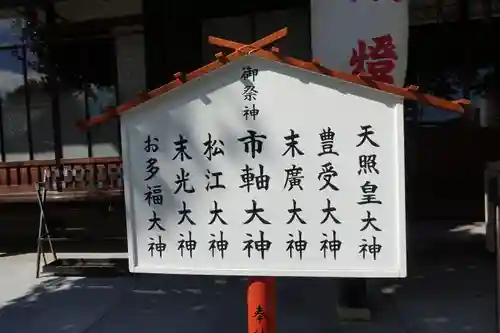 燈
御祭神
天照皇大神
豊受大神
末廣大神
市軸大神
末光大神
松江大神
お多福大神
奉